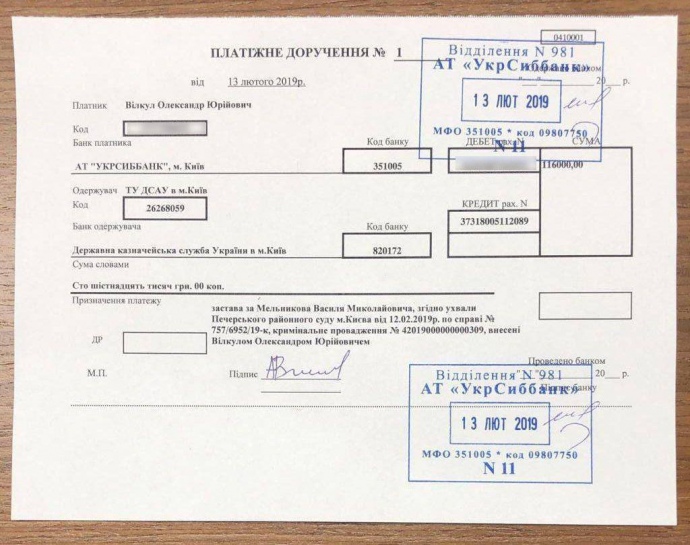 0410001
ПЛАТІЖНЕ ДОРУЧЕННЯ № 1
від 13 лютого 2019р. " " 20 р.
Відділення N 981
АТ «УкрСиббанк»
13 ЛЮТ 2019
МФО 351005 * код 09807750
N 11
Платник Вілкул Олександр Юрійович
Код
Банк платника Код банку ДЕБЕТ рах. N СУМА
АТ "УКРСИББАНК", м. Київ 351005 116000,00
Одержувач ТУ ДСАУ в м.Київ
Код 26268059 КРЕДИТ рах. N
Банк одержувача Код банку 37318005112089
Державна казначейська служба України в м.Київ 820172
Сума словами
Сто шістнадцять тисяч грн. 00 коп.
Призначення платежу
застава за Мельникова Василя Миколайовича, згідно ухвали
Печерського районного суду м.Києва від 12.02.2019р. по справі №
757/6952/19-к, кримінальне провадження № 42019000000000309, внесені
Вілкулом Олександром Юрійовичем
ДР
Проведено банком
М.П. Підпис " " 20 р.
Підпис банку
Відділення N 981
АТ «УкрСиббанк»
13 ЛЮТ 2019
МФО 351005 * код 09807750
N 11